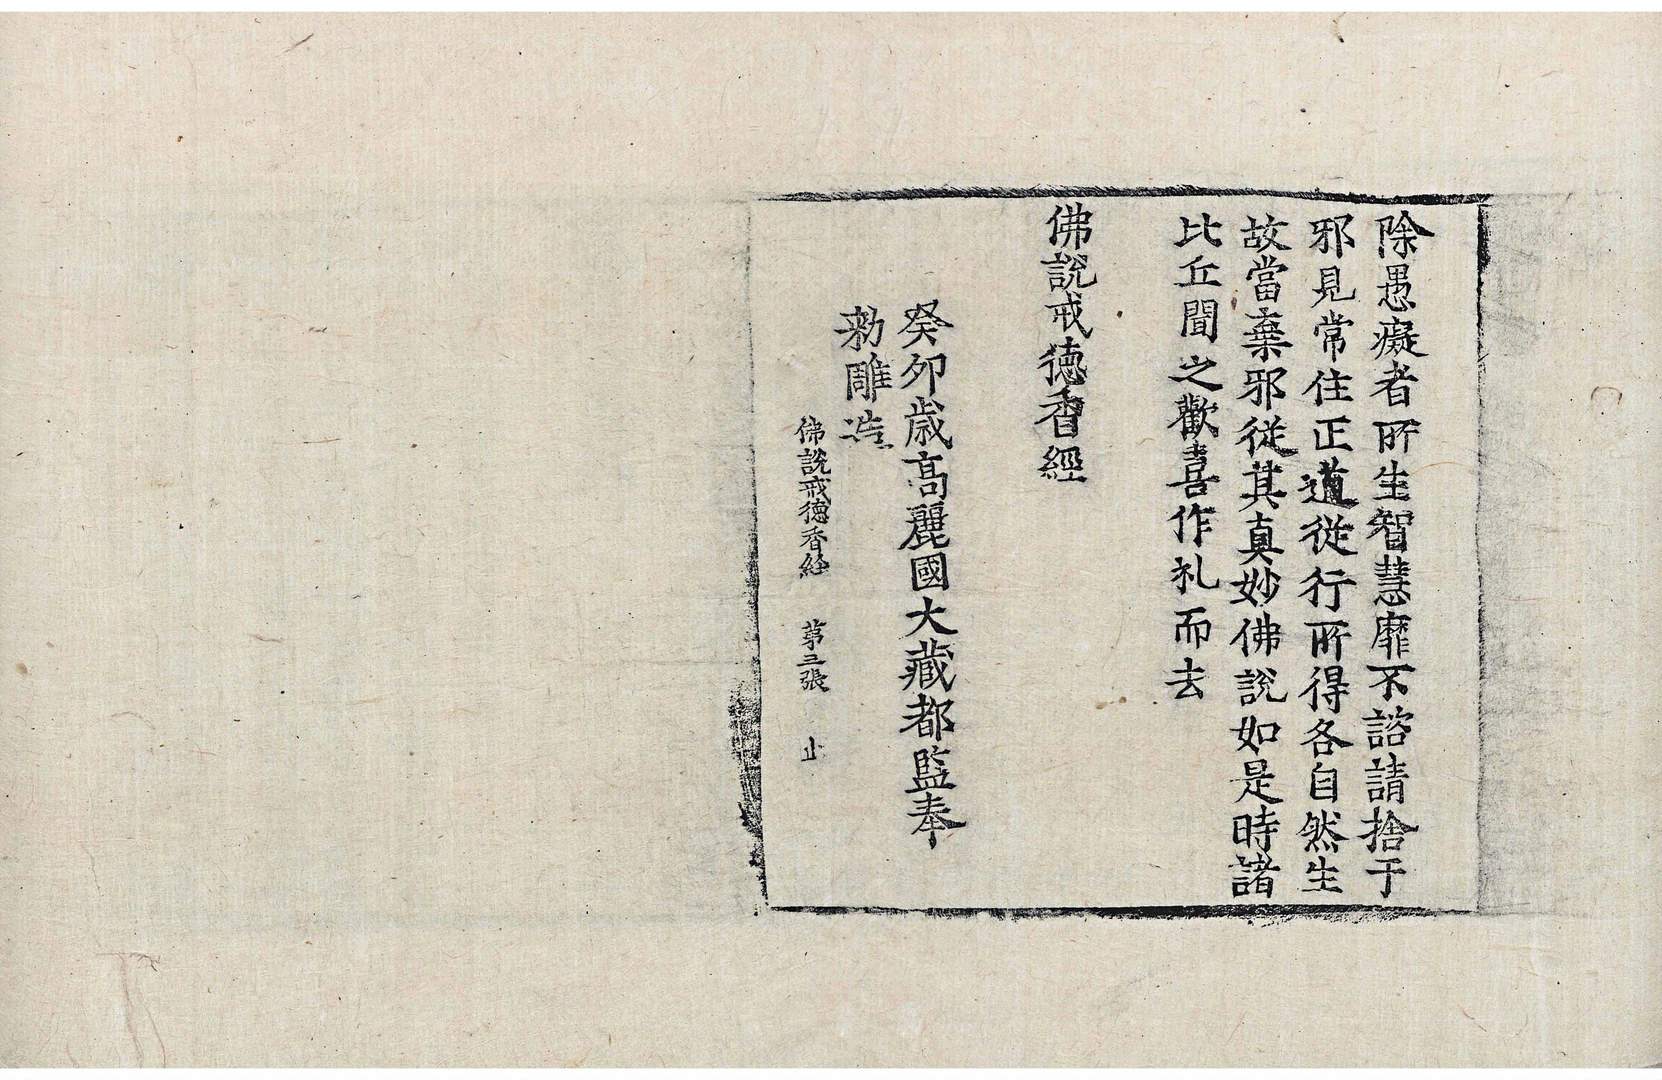 除愚癡者所生智慧靡不諮請捨于
邪見常住正道從行所得各自然生
故當棄邪從其真妙佛說如是時諸
比丘聞之歡喜作礼而去
佛說戒德香經
癸卯歲高麗國大藏都監奉
勅雕造
佛說戒德香経 第三張 止